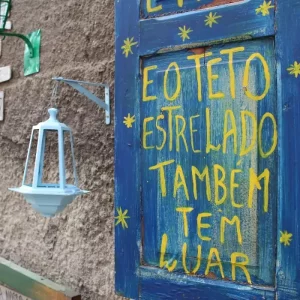 E O TETO
ESTRELADO
TAMBÉM
TEM
LUAR